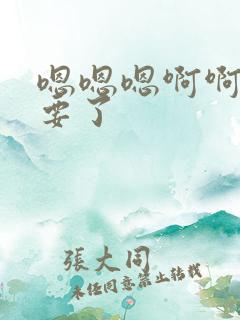 嗯嗯嗯啊啊
要了
張大同
未经同意禁止转载